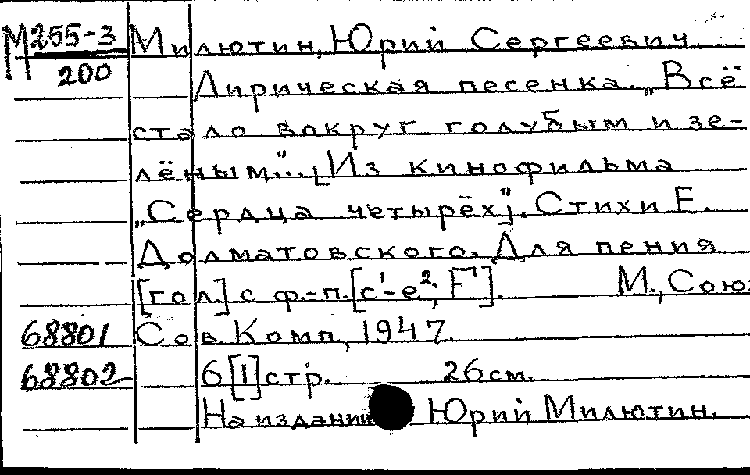 М 255-3 Милютин, Юрий Сергеевич
200
Лирическая песенка „Всё
стало вокруг голубым и зе-
лёным"... [Из кинофильма
„Сердца четырёх"]. Стихи Е.
Долматовского. Для пения
[гол.] с ф.-п. [c¹-e²; F¹]. М., Союз
68801 Сов. Комп., 1947.
68802 6 [1] стр. 26 см.
На издании Юрий Милютин.